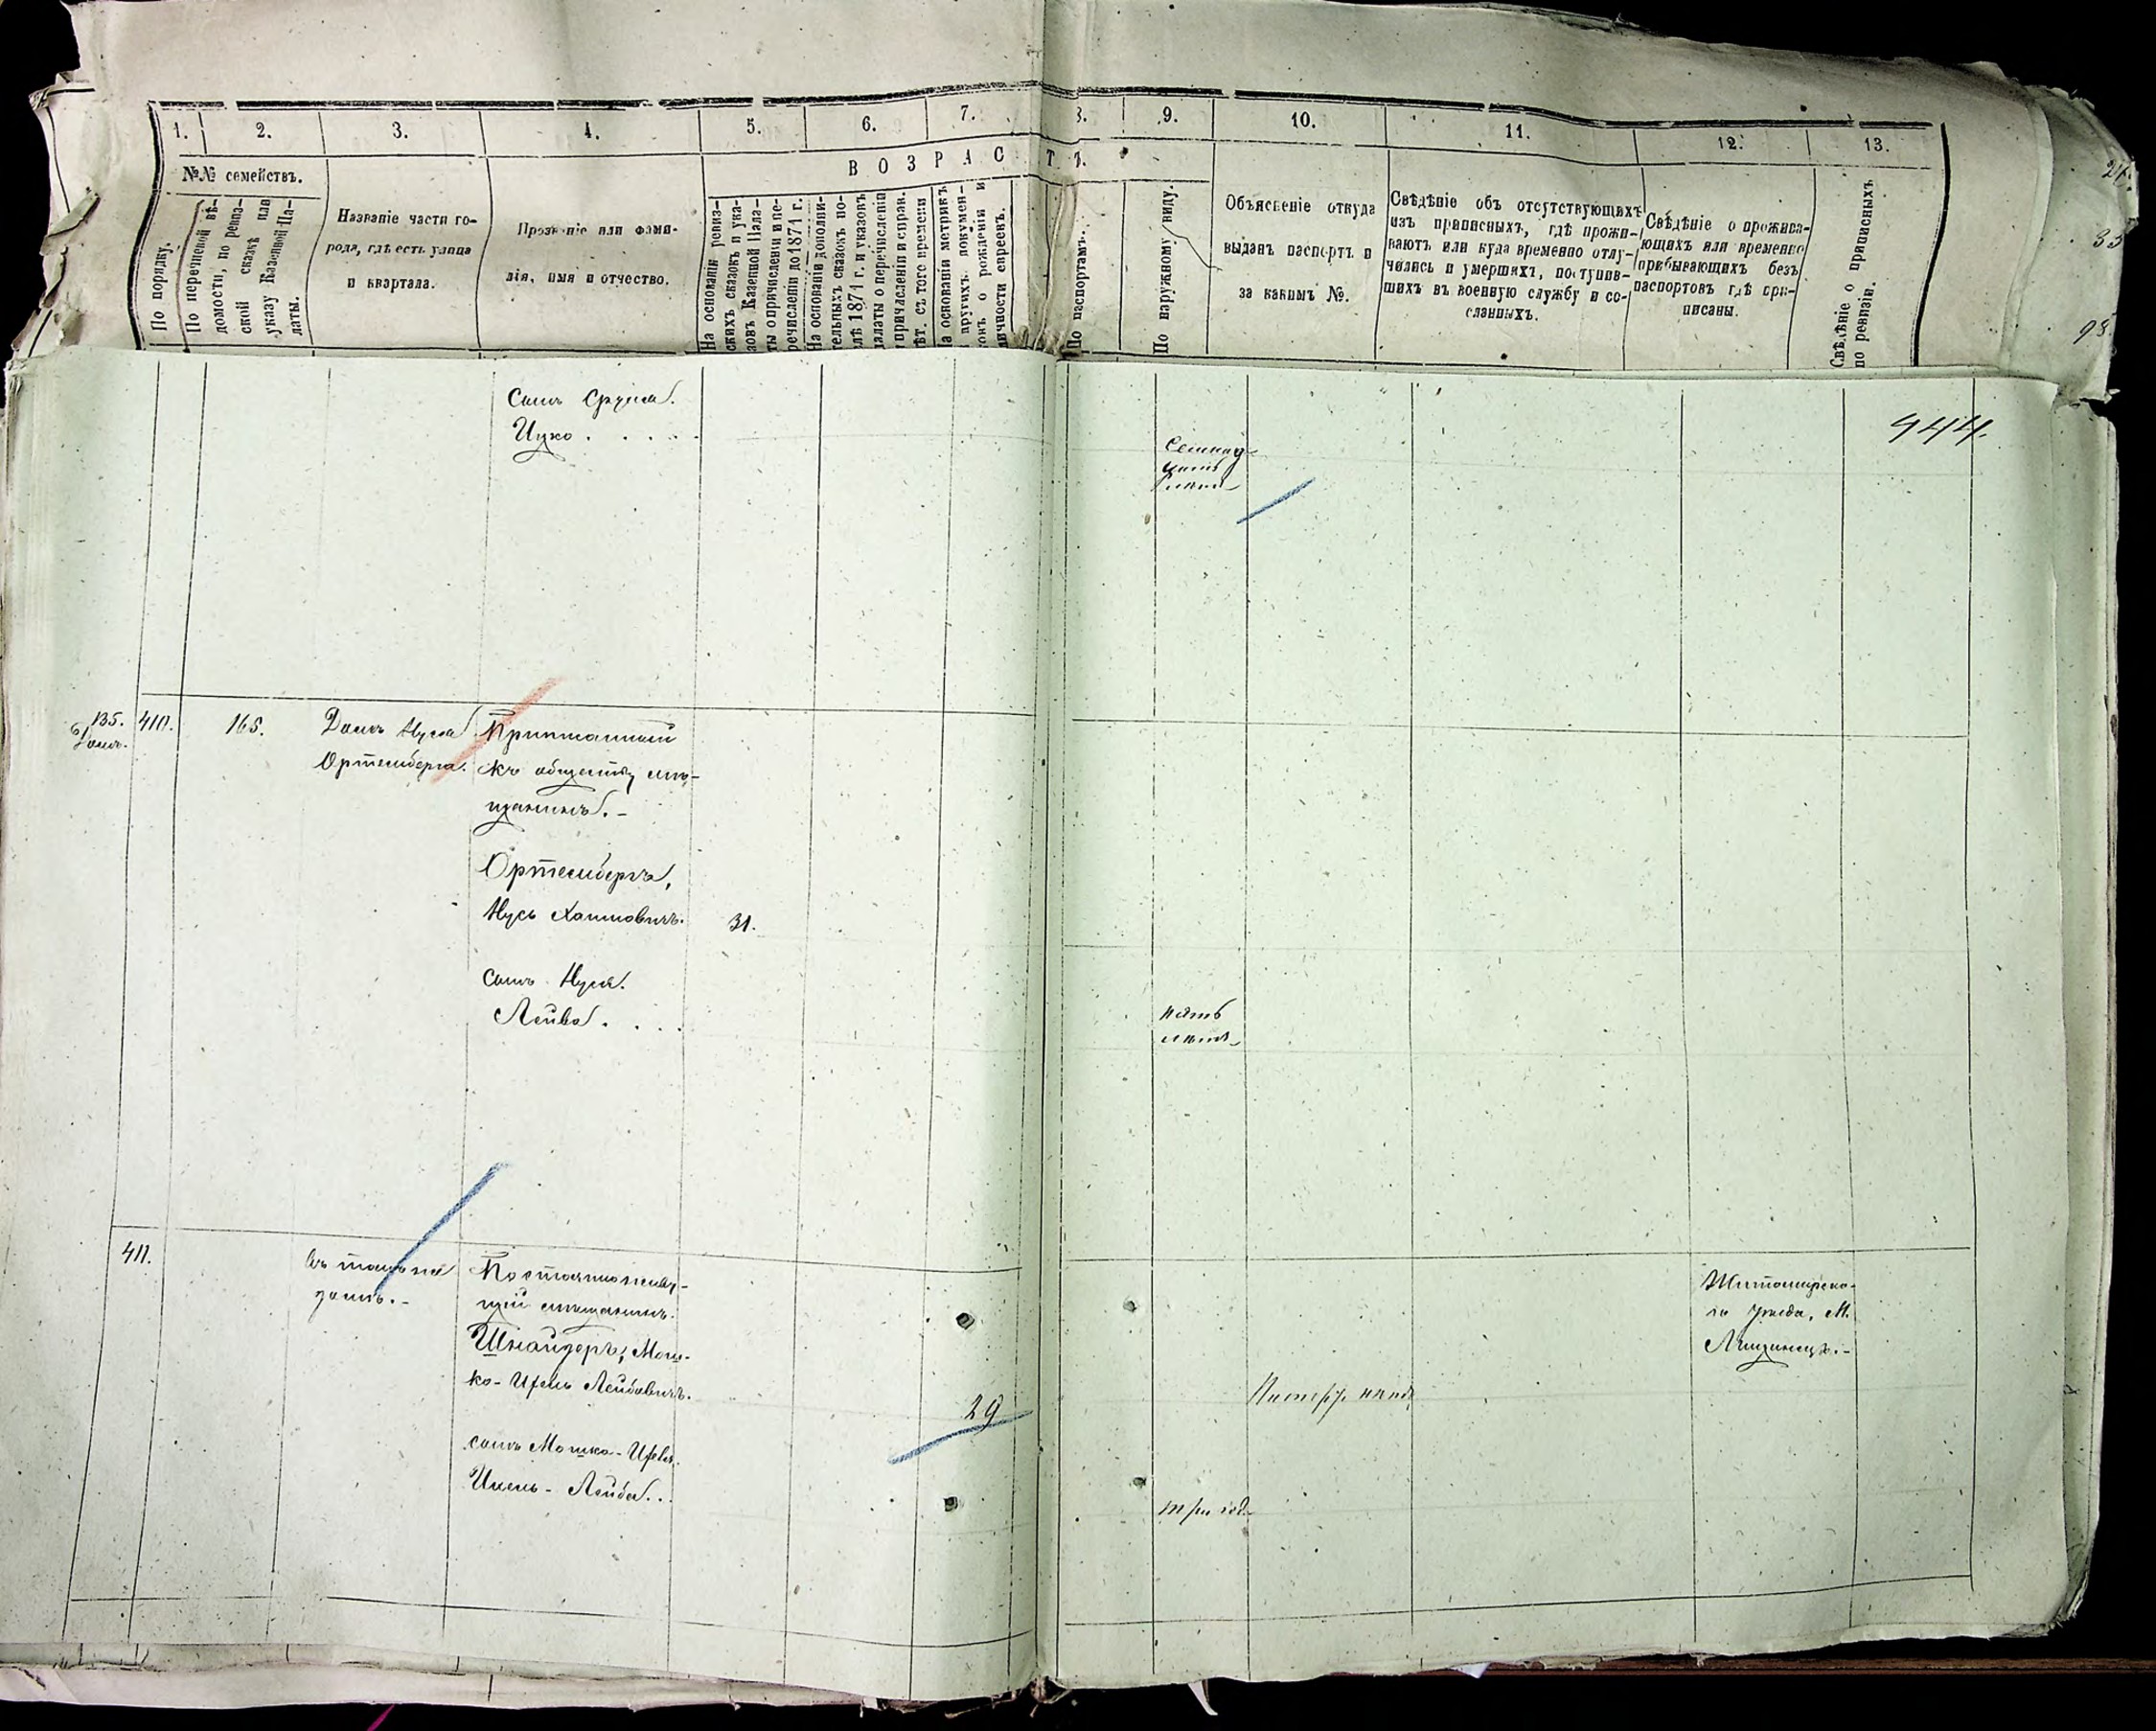 1. 2. 3. 4. 5. 6. 7. 8. 9. 10. 11. 12. 13.
№№ семействъ.
ВОЗРАСТЪ.
По порядку.
По перечневой вѣ-
домости, по ревиз-
ской сказкѣ или
указу Казенной Па-
латы.
Названіе части го-
рода, гдѣ есть улица
и квартала.
Прозваніе или фами-
лія, имя и отчество.
На основаніи ревиз-
скихъ сказокъ и ука-
зовъ Казенной Пала-
ты о причисленіи и пе-
речисленіи до 1871 г.
На основаніи дополни-
тельныхъ сказокъ по-
слѣ 1871 г. и указовъ
палаты о перечисленіи
и причисленіи и справ.
лѣт. съ того времени
На основаніи метрикъ
и другихъ докумен-
товъ о рожденіи и
личности евреевъ.
По паспортамъ.
По наружному виду.
Объясненіе откуда
выданъ паспортъ и
за какимъ №.
Свѣдѣніе объ отсутствующихъ
изъ приписныхъ, гдѣ прожи-
ваютъ или куда временно отлу-
чились и умершихъ, поступив-
шихъ въ военную службу и со-
сланныхъ.
Свѣдѣніе о прожива-
ющихъ или временно
прибывающихъ безъ
паспортовъ гдѣ при-
писаны.
Свѣдѣніе о приписныхъ
по ревизіи.
944.
Сынъ Сруля.
Ицко . . . . .
Семнад-
цать
лѣтъ
135.
410.
165.
Домъ Нуся
Ортенберга.
Приписанный
къ обществу мѣ-
щанинъ.-
Ортенбергъ,
Нусь Хаимовичъ.
31.
сынъ Нуся.
Лейба . . . .
пять
лѣтъ
411.
въ томъ же
домѣ.-
Постоянноживу-
щій мѣщанинъ.
Шнайдеръ, Мош-
ко-Ицель Лейбовичъ.
29
сынъ Мошка-Ицеля.
Икель-Лейба . .
три года
Житомирска-
го уѣзда, М.